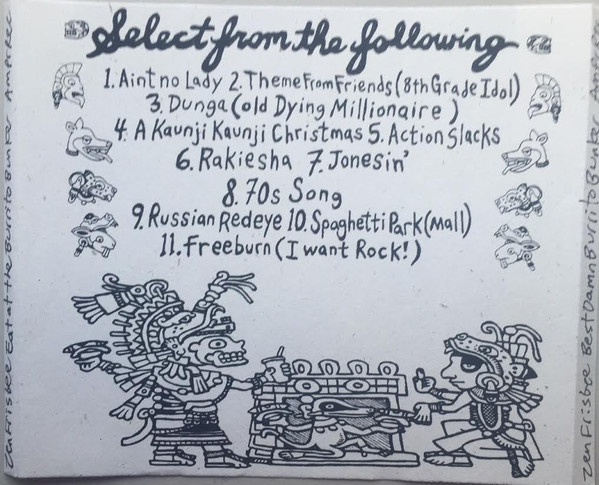 Select from the following
1. Aint no Lady 2. Theme From Friends (8th Grade Idol)
3. Dunga (old Dying Millionaire)
4. A Kaunji Kaunji Christmas 5. Action Slacks
6. Rakiesha 7. Jonesin'
8. 70s Song
9. Russian Redeye 10. Spaghetti Park (Mall)
11. Freeburn (I want Rock!)
Zen Frisbee Eat at the Burrito Bunker Amp Rec
Zen Frisbee Best Damn Burrito Bunker Amp Rec